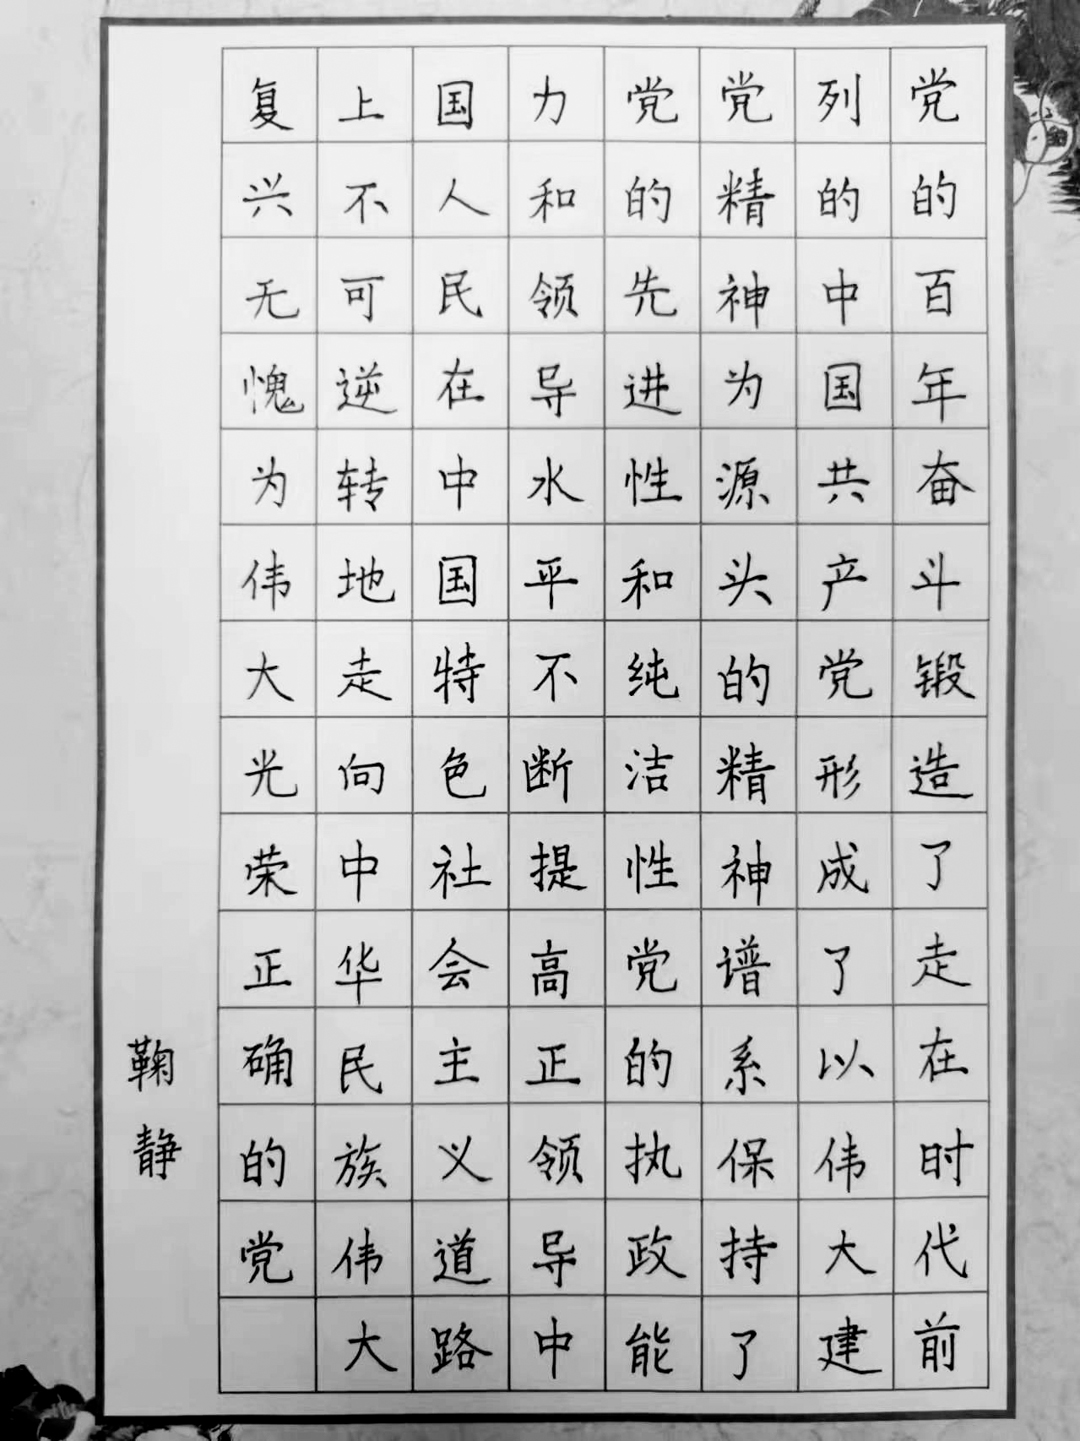 党的百年奋斗锻造了走在时代前
列的中国共产党形成了以伟大建
党精神为源头的精神谱系保持了
党的先进性和纯洁性党的执政能
力和领导水平不断提高正领导中
国人民在中国特色社会主义道路
上不可逆转地走向中华民族伟大
复兴无愧为伟大光荣正确的党
鞠静